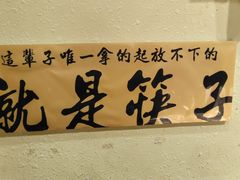 這輩子唯一拿的起放不下的
就是筷子